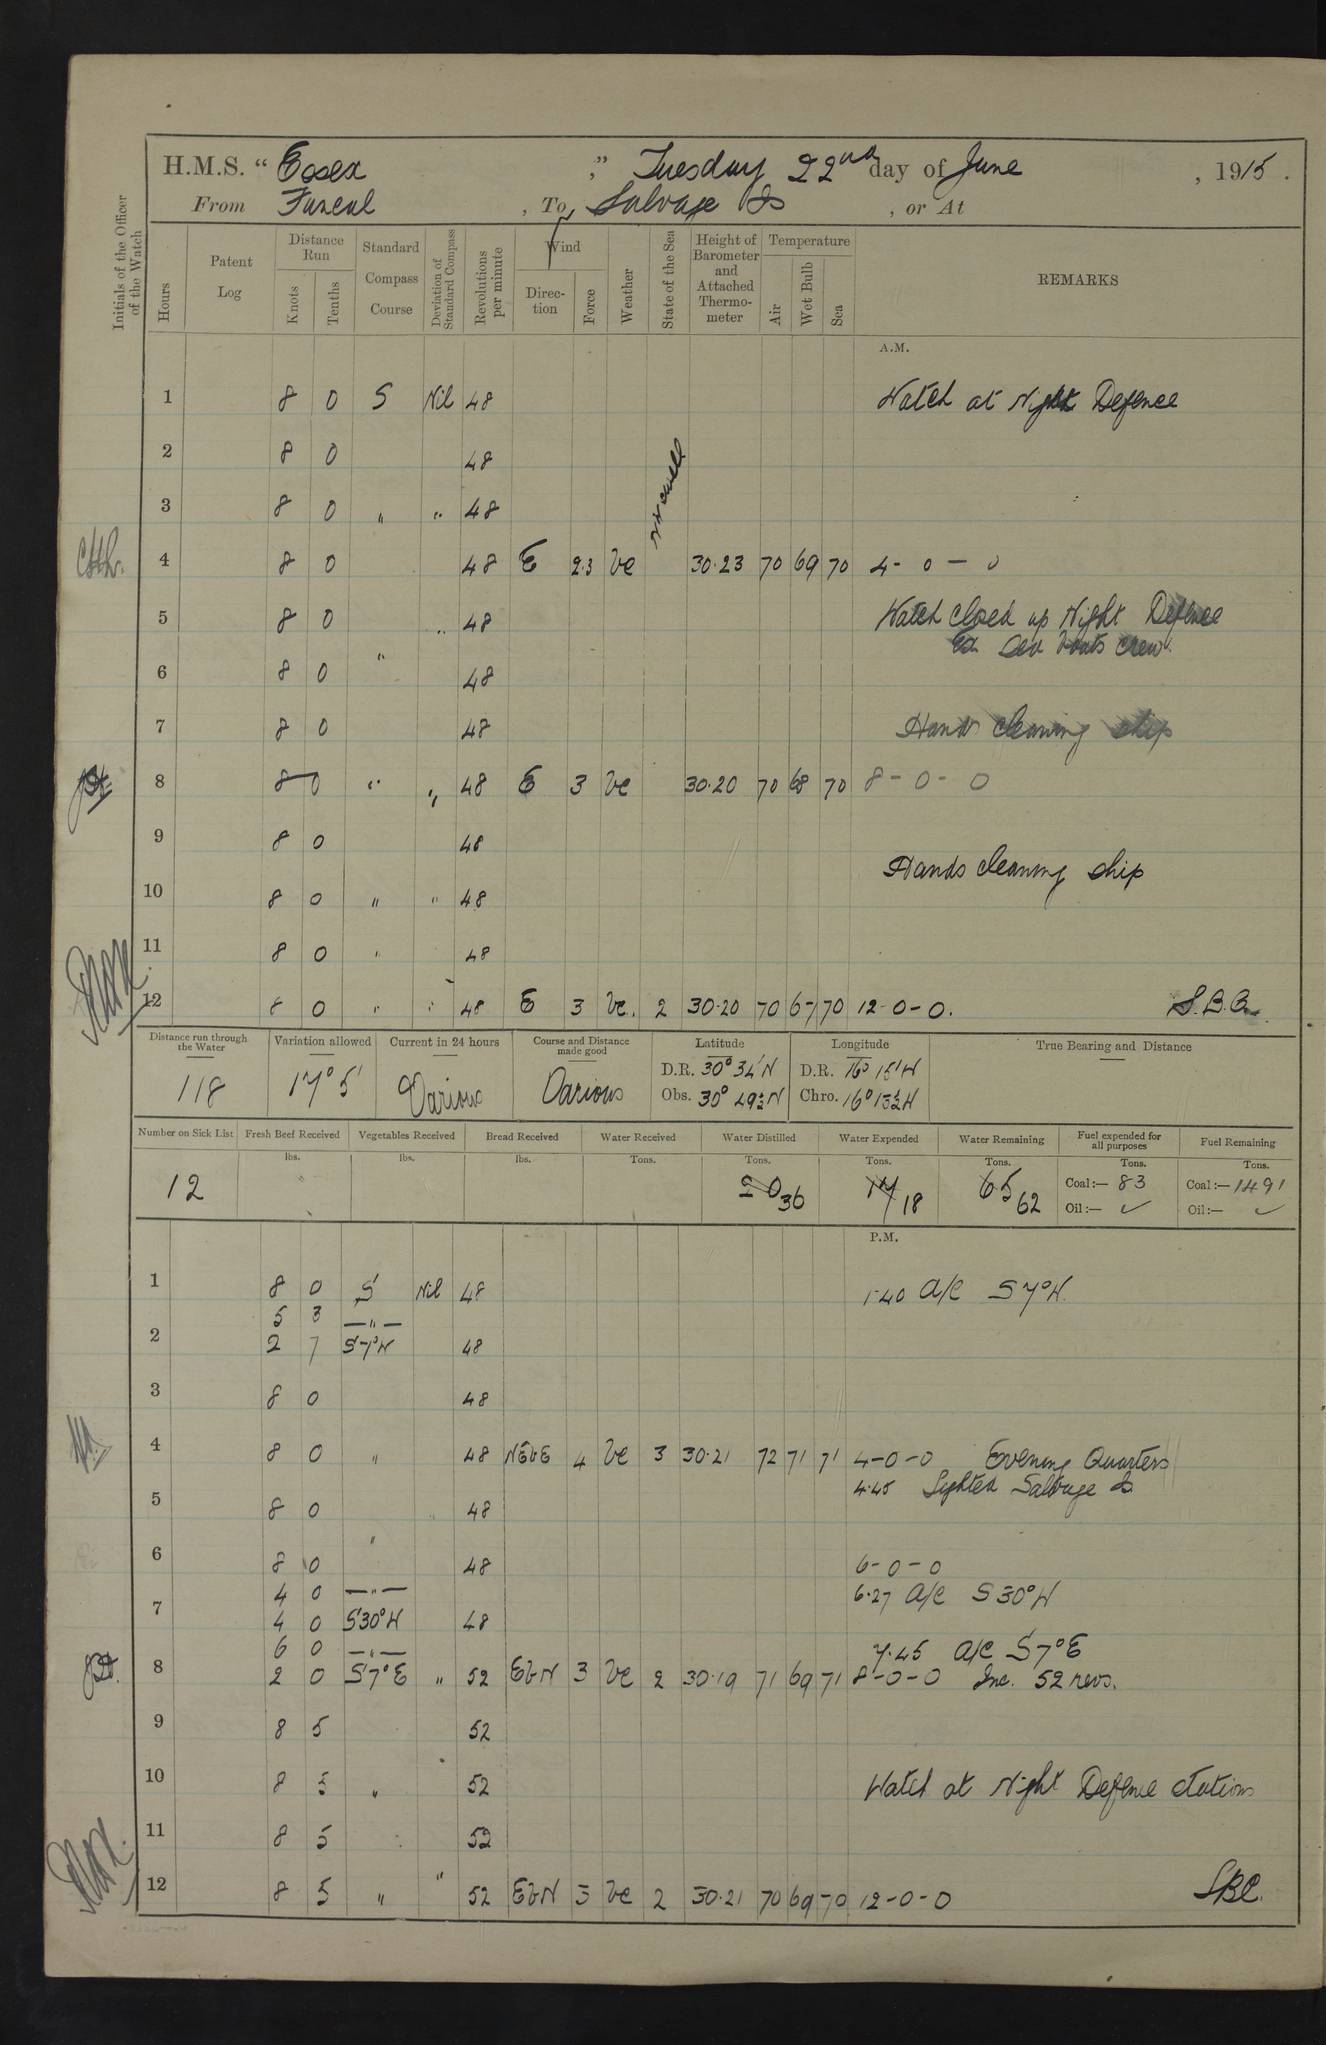 H.M.S. " Essex ," Tuesday 22nd day of June , 1915 .
From Funcal , To Salvage Is , or At
Initials of the Officer of the Watch
Hours Patent Log Distance Run Knots Tenths Standard Compass Course Deviation of Standard Compass Revolutions per minute Wind Direc-tion Force Weather State of the Sea Height of Barometer and Attached Thermo-meter Temperature Air Wet Bulb Sea REMARKS
A.M.
1 8 0 S Nil 48 Watch at Night Defence
2 8 0 48
3 8 0 " " 48
4 8 0 48 E 2.3 bc 30.23 70 69 70 4- 0 - 0
5 8 0 " 48 Watch closed up Night Defence
Ex Sea boats crew.
6 8 0 " 48
7 8 0 48 Hands cleaning ship
8 8 0 " " 48 E 3 bc 30.20 70 68 70 8 - 0 - 0
9 8 0 48
Hands cleaning ship
10 8 0 " " 48
11 8 0 " 48
12 8 0 " " 48 E 3 bc. 2 30.20 70 67 70 12-0-0. S.B.C.
Distance run through the Water Variation allowed Current in 24 hours Course and Distance made good Latitude Longitude True Bearing and Distance
118 17° 5' Various Various D.R. 30° 34' N D.R. 16° 15' W
Obs. 30° 49½ N Chro. 16° 13½ W
Number on Sick List Fresh Beef Received Vegetables Received Bread Received Water Received Water Distilled Water Expended Water Remaining Fuel expended for all purposes Fuel Remaining
lbs. lbs. lbs. Tons. Tons. Tons. Tons. Tons. Tons.
12 20 36 17 18 65 62 Coal:— 83 Coal:— 1491
Oil:— ✓ Oil:— ✓
P.M.
1 8 0 S Nil 48 1.40 A/C S 7° W.
5 3 — " —
2 2 7 S 7° W 48
3 8 0 48
4 8 0 " 48 NEbE 4 bc 3 30.21 72 71 71 4-0-0 Evening Quarters
4.45 Sighted Salvage Is
5 8 0 48
6 8 0 " 48 6-0-0
4 0 — " — 6.27 A/C S 30° W
7 4 0 S 30° W 48
6 0 — " — 7.45 A/C S 7° E
8 2 0 S 7° E " 52 EbN 3 bc 2 30.19 71 69 71 8-0-0 Inc. 52 revs.
9 8 5 52
10 8 5 " 52 Watch at Night Defence stations
11 8 5 52
12 8 5 " " 52 EbN 3 bc 2 30.21 70 69 70 12-0-0 SBC.